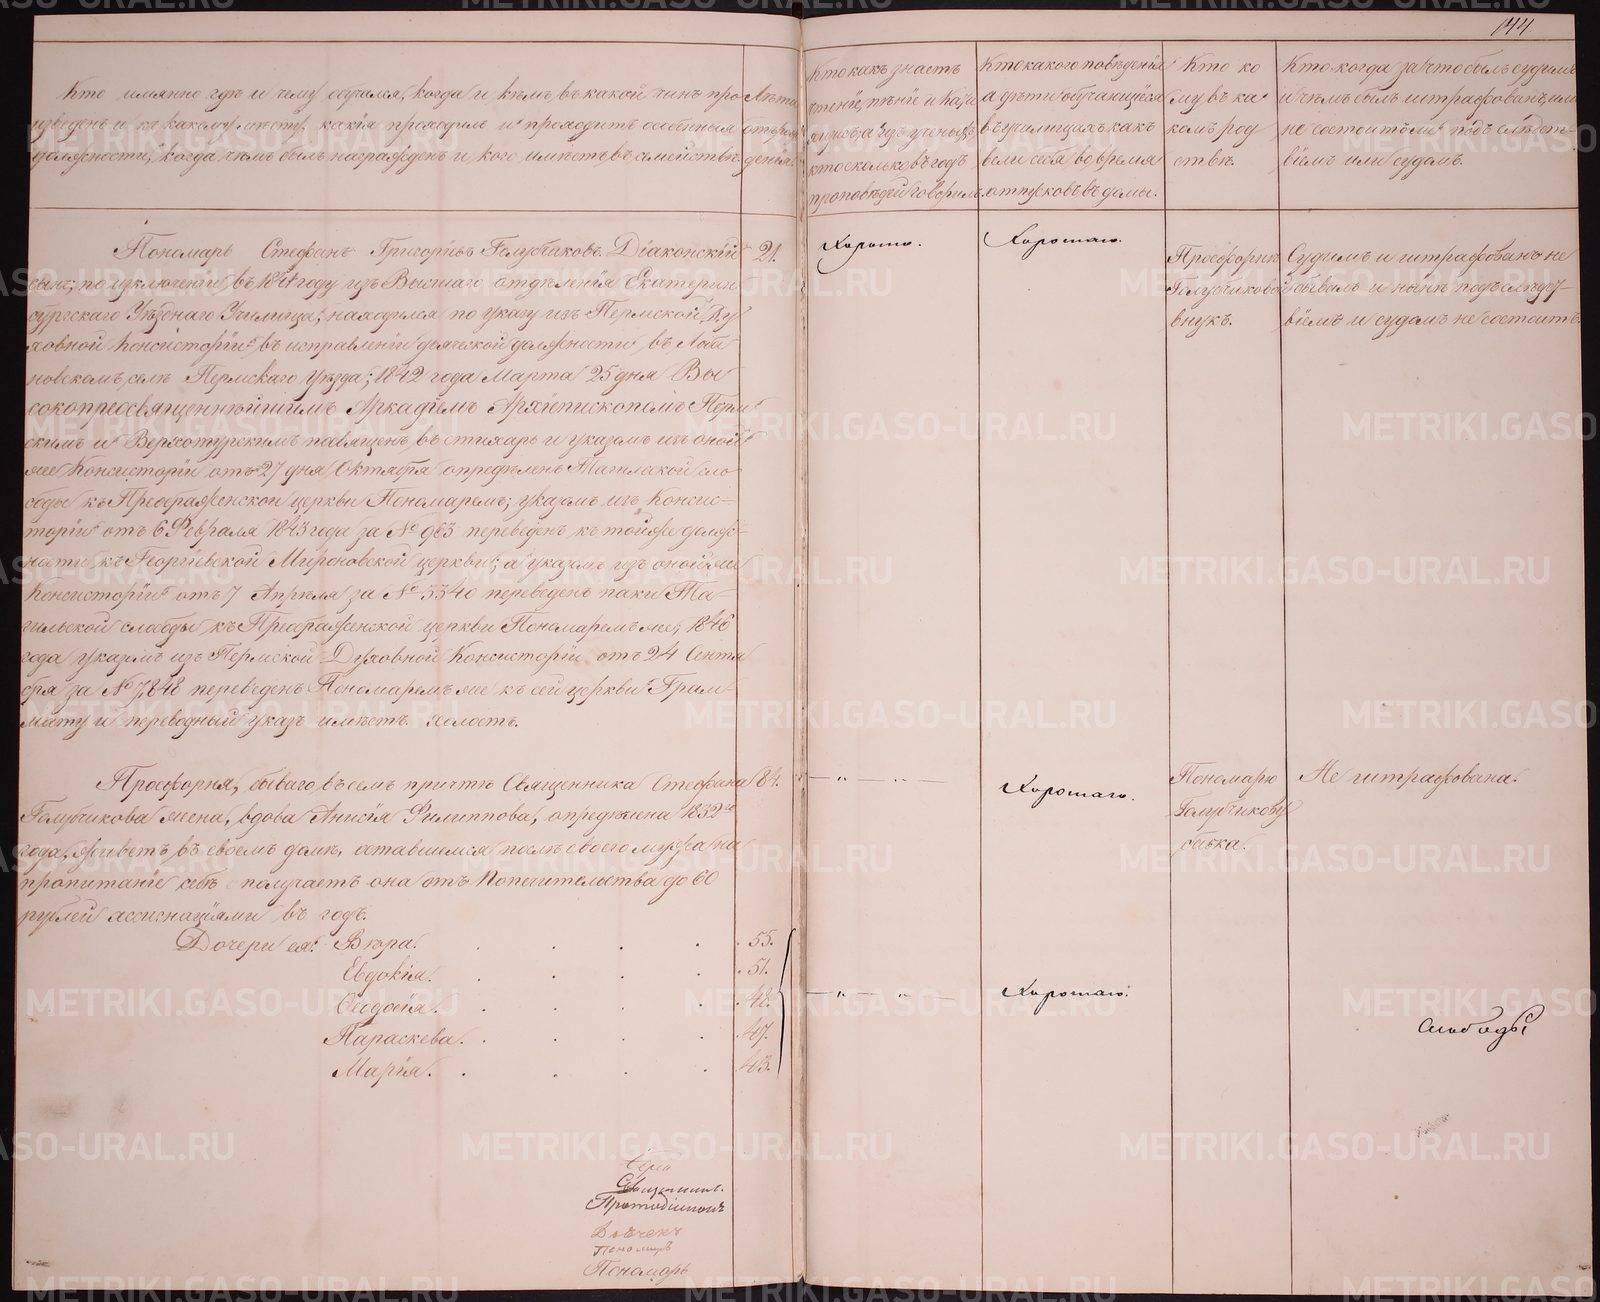 144
Кто имянно гдѣ и чему обучался, когда и кѣмъ въ какой чинъ про-
изведенъ и къ какому мѣсту, какія проходилъ и проходитъ особенныя
должности, когда чѣмъ былъ награжденъ и кого имѣетъ въ семействѣ.
Лѣта
отъ рож
денія.
Кто какъ знаетъ
чтеніе, пѣніе и кати
хизисъ, а изъ ученыхъ
кто сколько въ годъ
проповѣдей говорилъ.
Кто какого поведенія
а дѣти обучающіяся
въ училищахъ какъ
вели себя во время
отпусковъ въ домы.
Кто ко
му въ ка
комъ род
ствѣ.
Кто когда за что былъ судимъ
и чѣмъ былъ штрафованъ, или
не состоитъ ли подъ слѣдст-
віемъ или судомъ.
Пономарь Стефанъ Григорьевъ Голубчиковъ. Діаконскій
сынъ; по исключеніи въ 1841 году изъ Высшаго отдѣленія Екатерин
бургскаго Уѣзднаго Училища, находился по указу изъ Пермской Ду
ховной Консисторіи въ исправленіи дьяческой должности въ
новскомъ селѣ Пермскаго уѣзда; 1842 года Марта 25 дня Вы
сокопреосвященнѣйшимъ Аркадіемъ Архіепископомъ Перм
скимъ и Верхотурскимъ посвященъ въ стихарь и указомъ изъ оной
же Консисторіи отъ 27 дня Октября опредѣленъ Тагильской сло
боды къ Преображенской церкви Пономаремъ; указомъ изъ Консис-
торіи отъ 6 Февраля 1843 года за № 963 переведенъ къ той же долж
ности къ Георгіевской Мироновской церкви; а указомъ изъ оной же
Консисторіи отъ 7 Апрѣля за № 3340 переведенъ паки Та-
гильской слободы къ Преображенской церкви Пономаремъ же; 1846
года указомъ изъ Пермской Духовной Консисторіи отъ 24 Сентя
бря за № 7,848 переведенъ Пономаремъ же къ сей церкви. Грам-
мату и переводный указъ имѣетъ. холостъ.
21.
Хорошо.
Хорошаго.
Просфорнѣ
Голубчиковой
внукъ.
Судимъ и штрафованъ не
бывалъ и нынѣ подъ слѣдст-
віемъ и судомъ не состоитъ.
Просфорня, бываго въ семъ причтѣ Священника Стефана
Голубчикова жена, вдова Анисія Филиппова, опредѣлена 1832го
года, живетъ въ своемъ домѣ, оставшемся послѣ своего мужа, на
пропитаніе себѣ получаетъ она отъ Попечительства до 60
рублей ассигнаціями въ годъ.
84.
— „ — „ —
Хорошаго.
Пономарю
Голубчикову
бабка.
Не штрафована.
Дочери ея: Вѣра. . . . . 55.
Евдокія. . . . . 51.
Ѳеодосія. . . . . 48.
Параскева. . . . . 47.
Марія. . . . . 43.
— „ — „ —
Хорошаго.
Слободы
Священник.
Протодіаконъ
Пономарь
Пономарь
METRIKI.GASO-URAL.RU